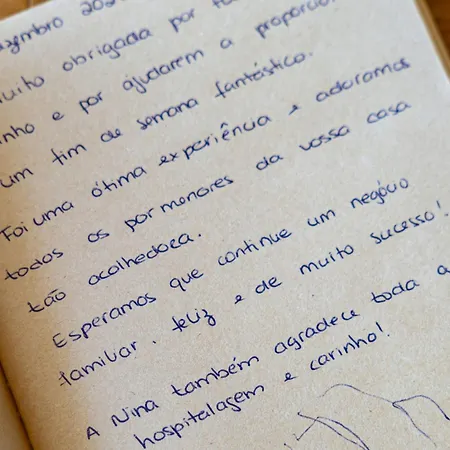 dezembro 202
muito obrigada por to
inho e por ajudarem a proporcio
um fim de semana fantástico.
Foi uma ótima experiência e adoramos
todos os pormenores da vossa casa
tão acolhedora.
Esperamos que continue um negócio
familiar, feliz e de muito sucesso!
A Nina também agradece toda a
hospitalagem e carinho!